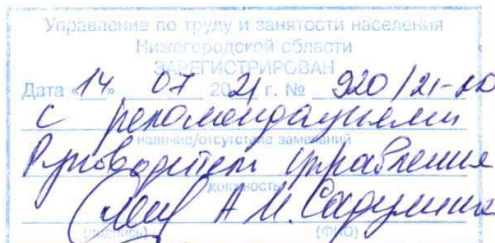 Управления по труду и занятости населения
Нижегородской области
ЗАРЕГИСТРИРОВАН
Дата «14» 07 2021 г. № 920/21-
с рекомендациями
наличие/отсутствие замечаний
Руководитель управления
должность
А.И.
(подпись) (ФИО)